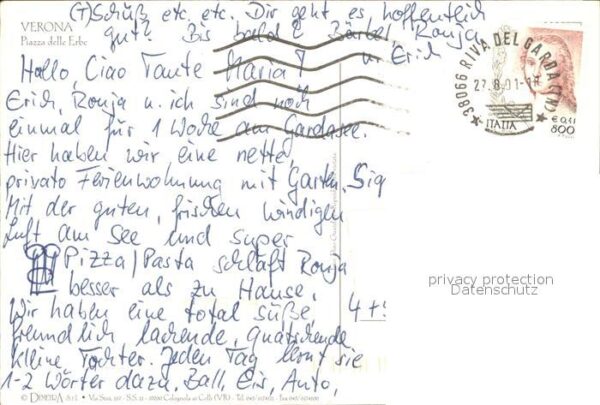 (T)Schüß etc. etc. Dir geht es hoffentlich
gut? Bis bald! Bärbel, Ronja
u. Erich
VERONA
Piazza delle Erbe
Hallo, Ciao Tante Maria!
Erich, Ronja u. ich sind noch
einmal für 1 Woche am Gardasee.
Hier haben wir eine nette,
private Ferienwohnung mit Garten.
Mit der guten, frischen windigen
Luft am See und super
Pizza/Pasta schläft Ronja
besser als zu Hause.
Wir haben eine total süße,
freundlich lachende, quatschende
kleine Tochter. Jeden Tag lernt sie
1-2 Wörter dazu. Ball, Eis, Auto,
38066 RIVA DEL GARDA (TN)
27.8.01-1
ITALIA
€ 0,41
800
privacy protection
Datenschutz
© DIMETRA S.r.l.